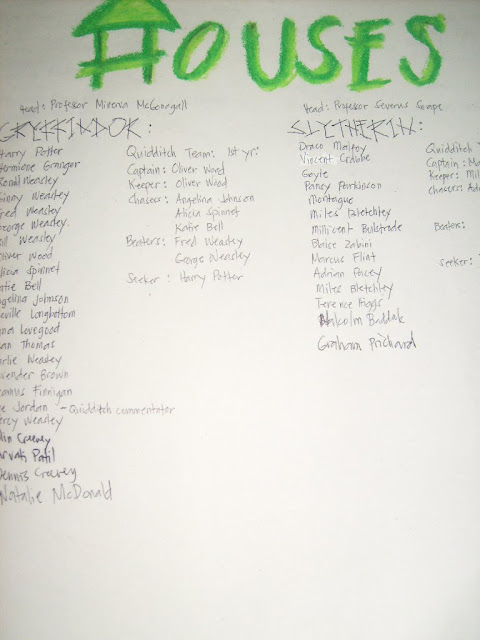 HOUSES
Head: Professor Minerva McGonagall
GRYFFINDOR:
Harry Potter
Hermione Granger
Ronald Weasley
Ginny Weasley
Fred Weasley
George Weasley
ill Weasley
liver Wood
licia Spinnet
atie Bell
ngelina Johnson
eville Longbottom
una Lovegood
ean Thomas
arlie Weasley
avender Brown
eamus Finnigan
ee Jordan - Quidditch commentator
ercy Weasley
olin Creevey
arvati Patil
Dennis Creevey
Natalie McDonald
Quidditch Team: 1st yr:
Captain: Oliver Wood
Keeper: Oliver Wood
Chasers: Angelina Johnson
Alicia Spinnet
Katie Bell
Beaters: Fred Weasley
George Weasley
Seeker: Harry Potter
Head: Professor Severus Snape
SLYTHERIN:
Draco Malfoy
Vincent Crabbe
Goyle
Pancy Parkinson
Montague
Miles Bletchley
Millicent Bulstrode
Blaise Zabini
Marcus Flint
Adrian Pucey
Miles Bletchley
Terence Higgs
Malcolm Baddok
Graham Prichard
Quidditch T
Captain: Ma
Keeper: Mil
chasers: Ad
Beaters:
Seeker: